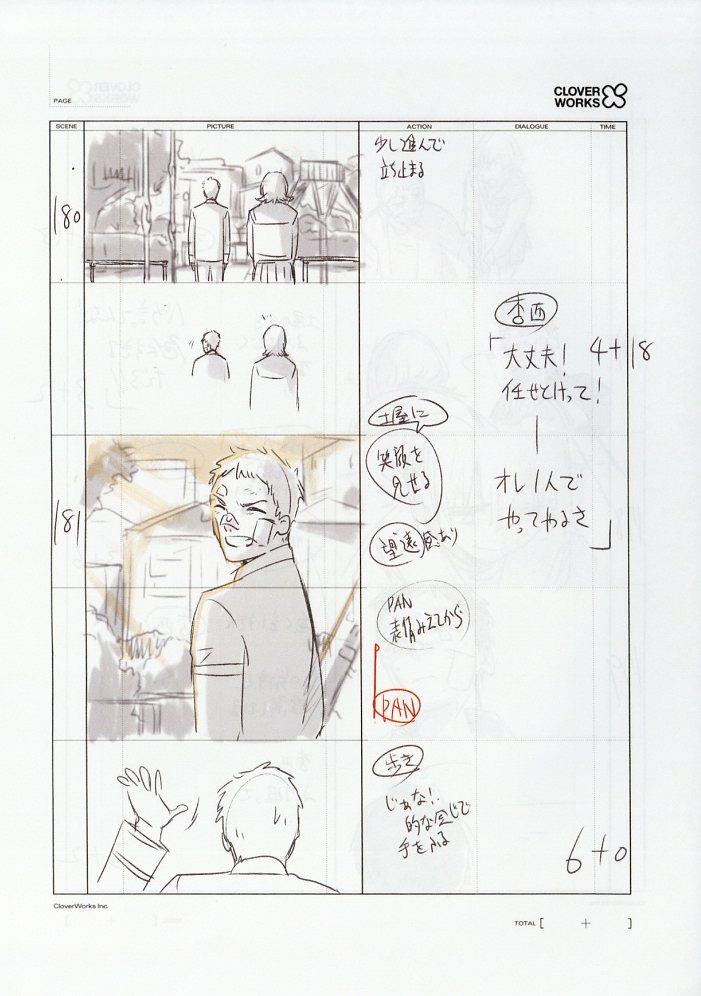 CLOVER
WORKS
PAGE
SCENE
PICTURE
ACTION
DIALOGUE
TIME
180
少し進んで
立ち止まる
杏西
「大丈夫!
任せとけって!
4+18
土屋に
笑顔を
見せる
181
オレ1人で
やってやるさ」
望遠感あり
PAN
表情みえてから
PAN
歩き
じゃあな!
的な感じで
手をふる
6+0
CloverWorks Inc.
TOTAL [ + ]